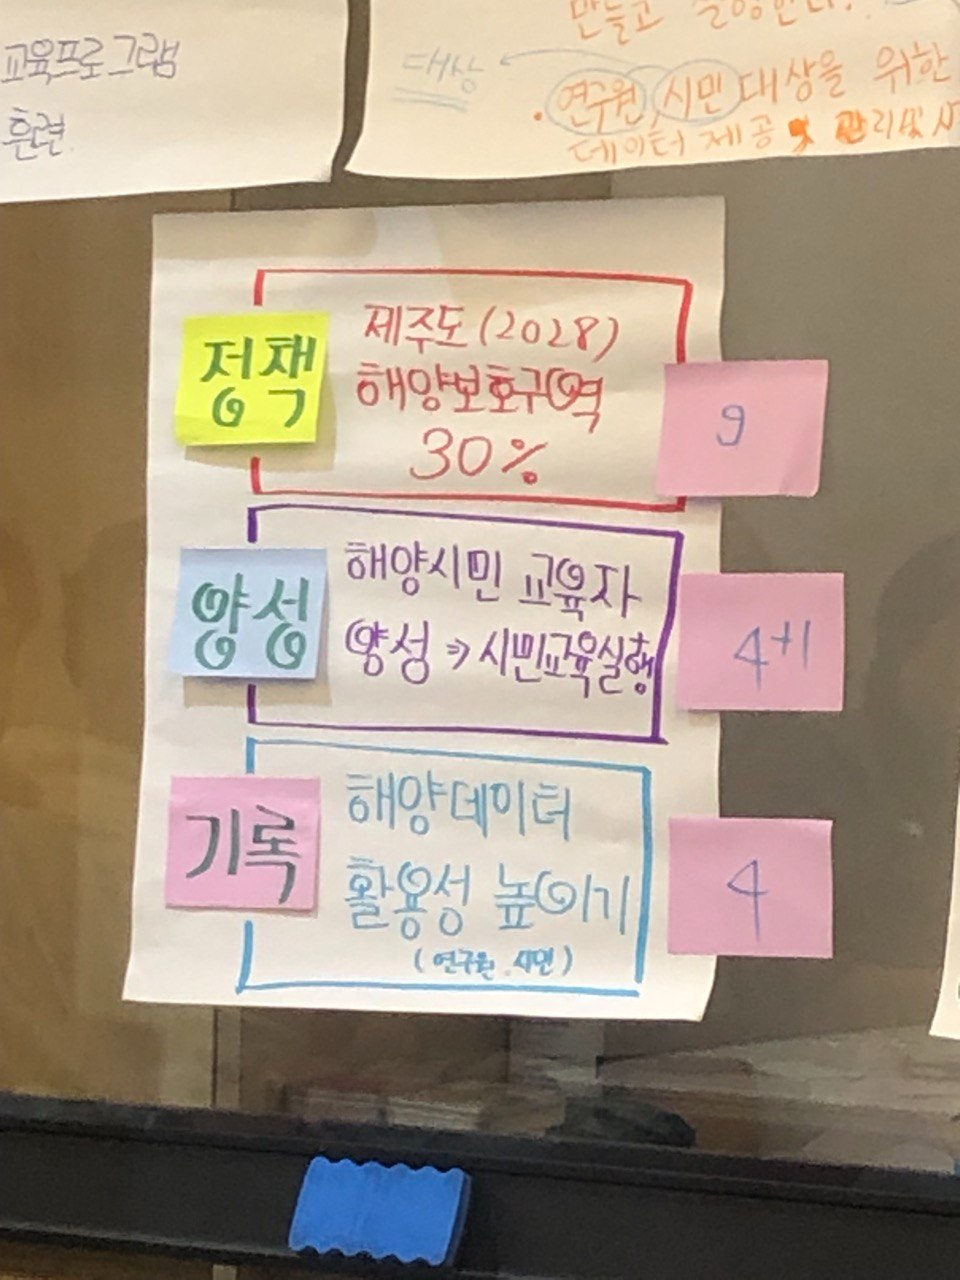 교육프로그램
훈련
만들고 실행한다.
대상
· 연구원, 시민 대상을 위한
데이터 제공 및 관리 및
정책
제주도 (2028)
해양보호구역
30%
9
양성
해양시민 교육자
양성 ⇒ 시민교육실행
4+1
기록
해양데이터
활용성 높이기
(연구원. 시민)
4